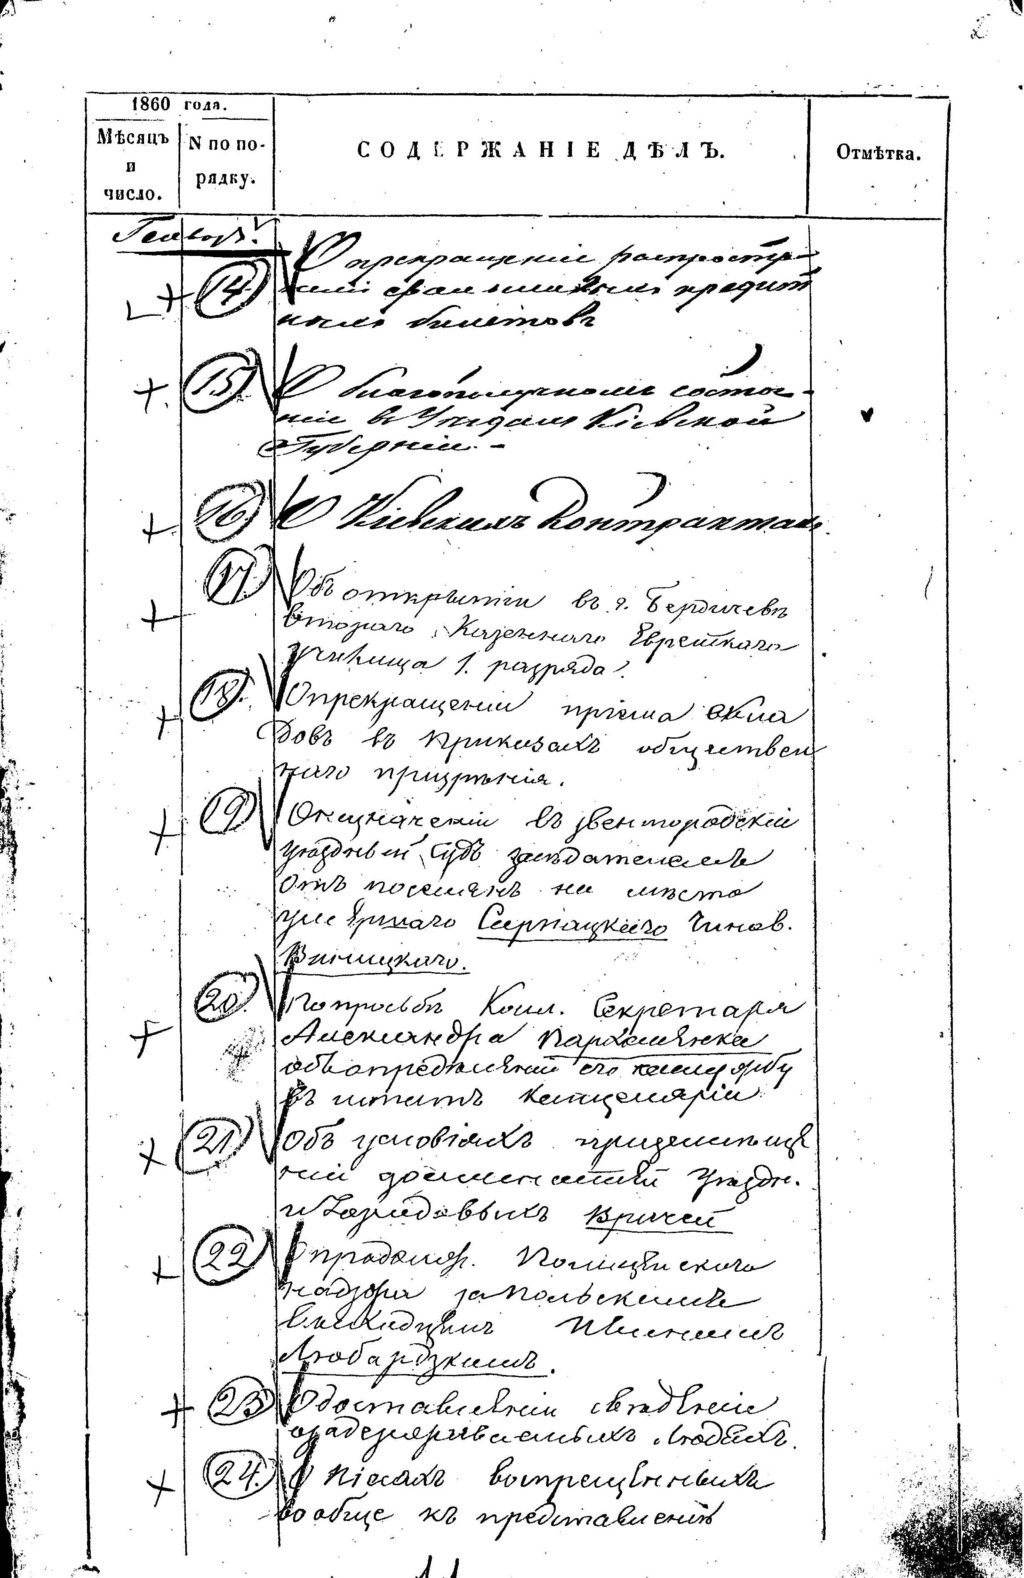 2
1860 года.
Мѣсяцъ
и
число.
N по по-
рядку.
СОДЕРЖАНІЕ ДѢЛЪ.
Отмѣтка.
Генварь.
14. О прекращеніи распростра-
неніи фальшивыхъ кредит
ныхъ билетовъ
15. О благополучномъ состоя-
ніи въ Уѣздахъ Кіевской
Губерніи.
16. О Кіевскихъ Контрактахъ
17. Объ открытіи въ г. Бердичевѣ
втораго Казеннаго Еврейскаго
училища 1. разряда.
18. О прекращеніи пріема вкла
довъ въ Приказахъ обществен
наго призрѣнія.
19. О назначеніи въ Звенигородскій
Уѣздный Судъ засѣдателемъ
отъ поселянъ на мѣсто
умершаго Чинов.
Виницкаго.
20. По просьбѣ Колл. Секретаря
Александра Пархоменка
объ опредѣленіи его на службу
въ штатъ Канцеляріи
21. Объ условіяхъ при
ніи должностей Уѣздн.
и Городовыхъ Врачей
22. О продолж. Полицейскаго
надзора за Польскимъ
Выходцемъ
Любардзкимъ.
23. О доставленіи свѣдѣніе
о задерживаемыхъ людяхъ.
24. О піесахъ воспрещенныхъ
вообще къ представленію